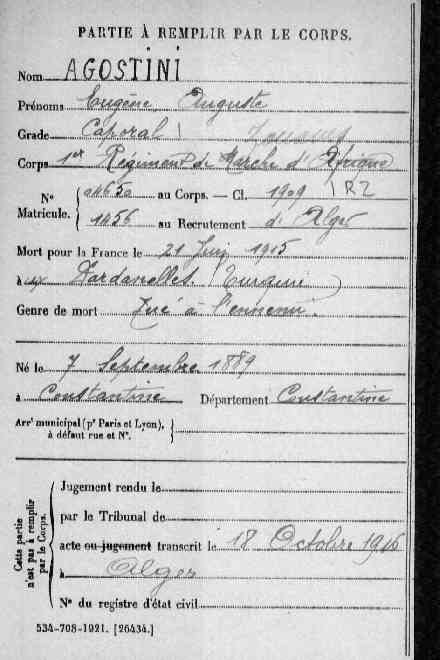 PARTIE À REMPLIR PAR LE CORPS.
Nom AGOSTINI
Prénoms Eugène Auguste
Grade Caporal
Corps 1er Régiment de Marche d'Afrique
1 RZ
N° Matricule. { 04650 au Corps. — Cl. 1909
1456 au Recrutement d'Alger
Mort pour la France le 21 Juin 1915
à ux Dardanelles (Turquie)
Genre de mort Tué à l'ennemi.
Né le 7 Septembre 1889
à Constantine Département Constantine
Arrt municipal (pr Paris et Lyon), à défaut rue et N°.
Cette partie n'est pas à remplir par le Corps.
Jugement rendu le
par le Tribunal de
acte ou jugement transcrit le 18 Octobre 1916
à Alger
N° du registre d'état civil
534-708-1921. [26434.]